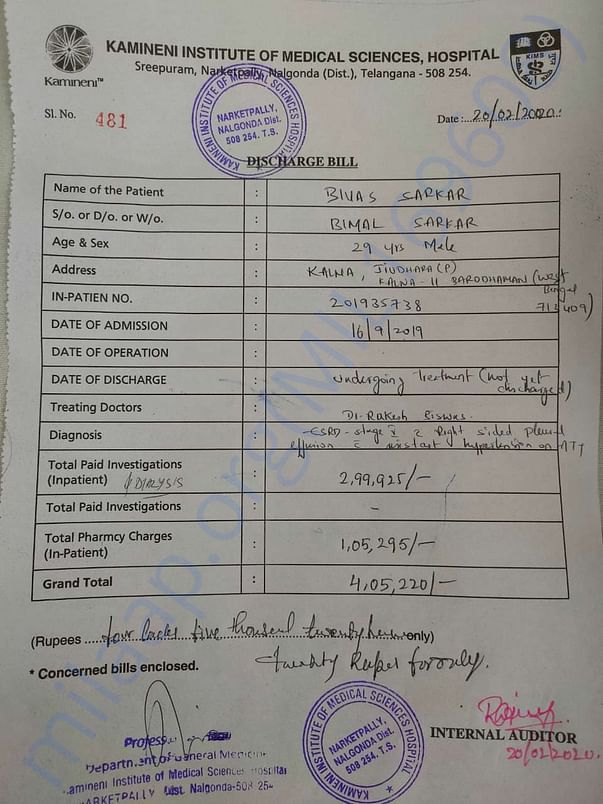 KAMINENI INSTITUTE OF MEDICAL SCIENCES, HOSPITAL
Sreepuram, Narketpally, Nalgonda (Dist.), Telangana - 508 254.
Kamineni™
KIMS
Sl. No. 481
Date : 20/02/2020
KAMINENI INSTITUTE OF MEDICAL SCIENCES HOSPITAL
NARKETPALLY,
NALGONDA Dist.
508 254. T.S.
DISCHARGE BILL
Name of the Patient : BIVAS SARKAR
S/o. or D/o. or W/o. : BIMAL SARKAR
Age & Sex : 29 yrs Male
Address : KALNA, JIUDHARA (P)
KALNA-II BARDDHAMAN (West
Bengal
713409)
IN-PATIEN NO. : 201935738
DATE OF ADMISSION : 16/9/2019
DATE OF OPERATION :
DATE OF DISCHARGE : undergoing Treatment (not yet
discharged)
Treating Doctors : Dr. Rakesh Biswas.
Diagnosis : ESRD - stage V c Right sided pleural
effusion c resistant hypertension on ATT
Total Paid Investigations
(Inpatient) DIALYSIS : 2,99,925/-
Total Paid Investigations : -
Total Pharmcy Charges
(In-Patient) : 1,05,295/-
Grand Total : 4,05,220/-
(Rupees four lacks five thousand only)
* Concerned bills enclosed.
Twenty Rupes
Department of General Medicine
Kamineni Institute of Medical Sciences Hospital
NARKETPALLY Dist. Nalgonda-508 254
KAMINENI INSTITUTE OF MEDICAL SCIENCES HOSPITAL
NARKETPALLY,
NALGONDA Dist.
508 254. T.S.
INTERNAL AUDITOR
20/02/2020.